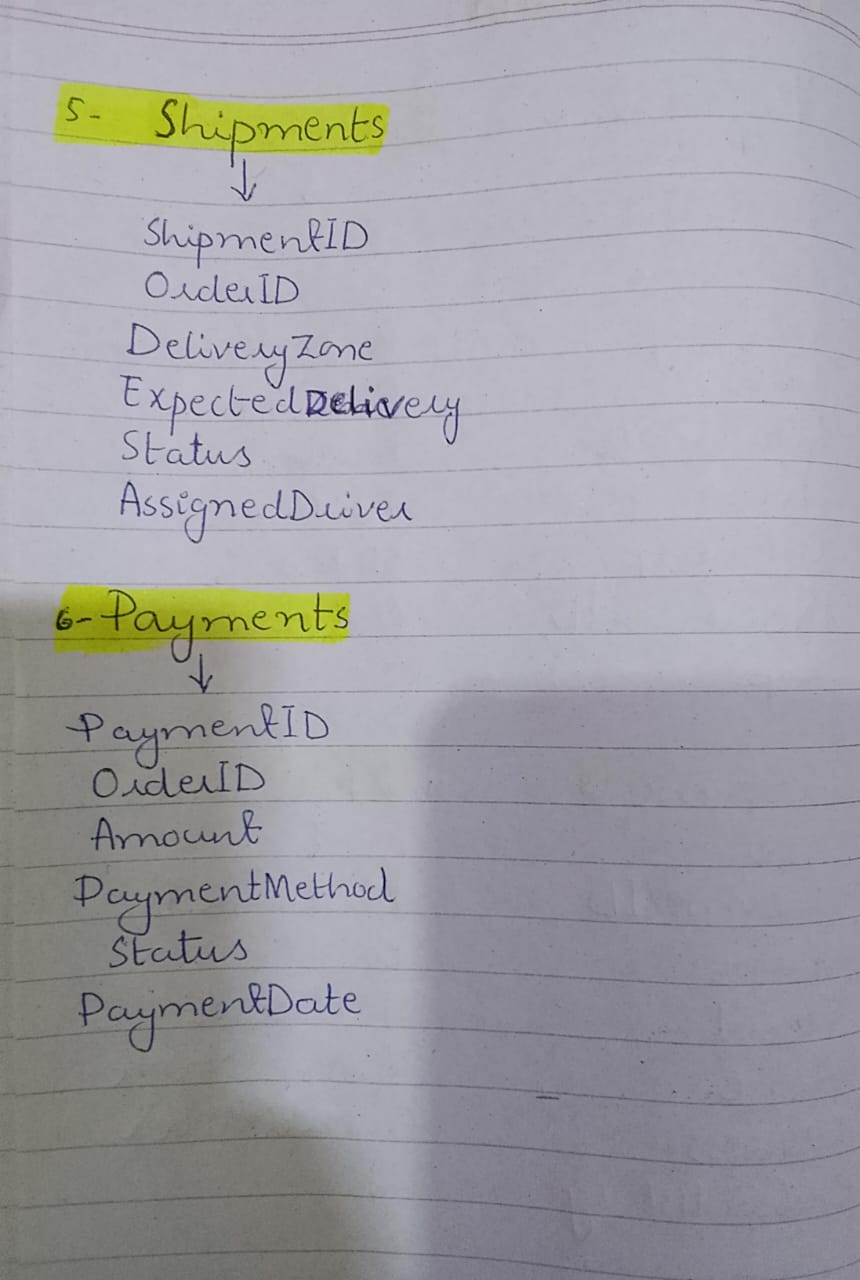 5- Shipments
↓
ShipmentID
OrderID
DeliveryZone
ExpectedDelivery
Status
AssignedDriver
6- Payments
↓
PaymentID
OrderID
Amount
PaymentMethod
Status
PaymentDate